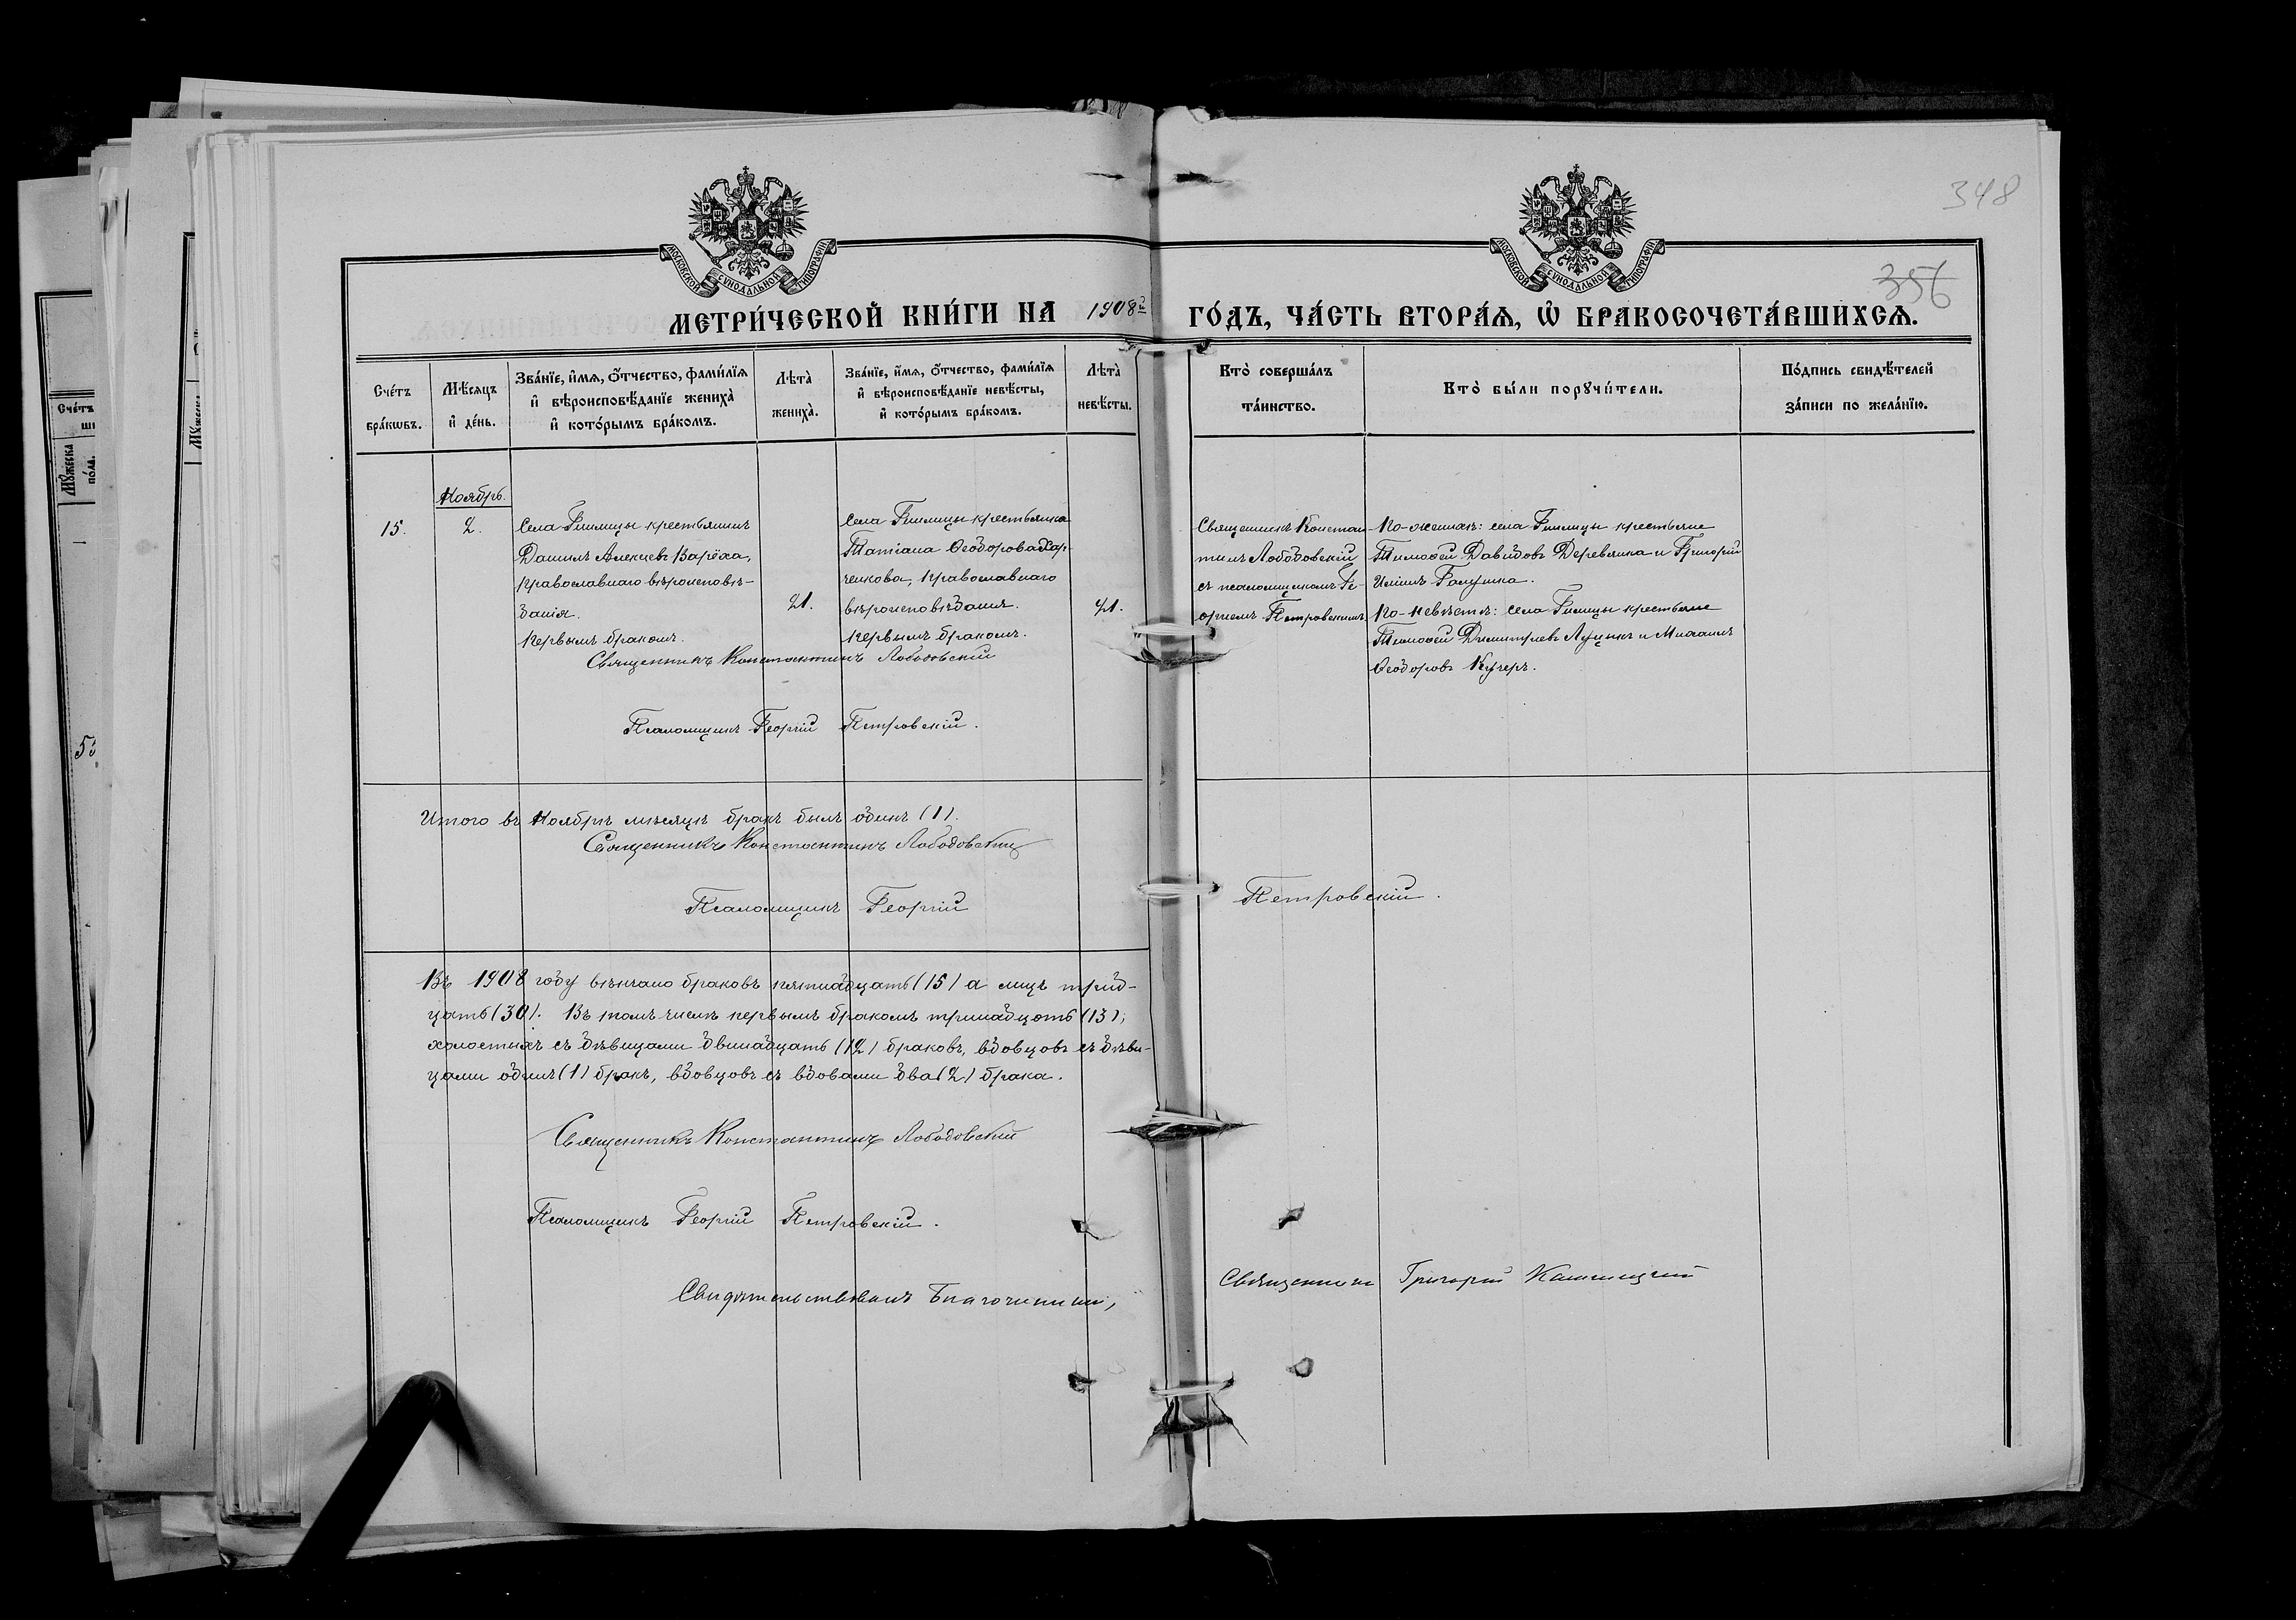 348
356
МОСКОВСКОЙ СѴНОДАЛЬНОЙ ТИПОГРАФІИ
МОСКОВСКОЙ СѴНОДАЛЬНОЙ ТИПОГРАФІИ
МЕТРИ́ЧЕСКОЙ КНИ́ГИ НА 1908й ГО́ДЪ, ЧА́СТЬ ВТОРА́Я, Ѡ҆ БРАКОСОЧЕТА́ВШИХСЯ.
Сче́тъ бра́кѡвъ.
Мѣ́сяцъ и҆ де́нь.
Зва́нїе, и҆́мя, ѻ҆́тчество, фами́лїя
и҆ вѣроисповѣ́данїе жениха̀
и҆ кото́рымъ бра́комъ.
Лѣта̀ жениха̀.
Зва́нїе, и҆́мя, ѻ҆́тчество, фами́лїя
и҆ вѣроисповѣ́данїе невѣ́сты,
и҆ кото́рымъ бра́комъ.
Лѣта̀ невѣ́сты.
Кто̀ соверша́лъ та́инство.
Кто̀ бы́ли порꙋчи́тели.
По́дпись свидѣ́телей за́писи по жела́нїю.
Ноябрь.
15.
2.
Села Гнилицы крестьянинъ
Даниилъ Алексѣевъ
православнаго вѣроисповѣ-
данія.
первымъ бракомъ.
21.
Села Гнилицы крестьянка
Татіана Ѳеодорова Хар-
ченкова, православнаго
вѣроисповѣданія.
первымъ бракомъ.
21.
Священникъ Констан-
тинъ Лободовскій
съ псаломщикомъ Ге-
оргіемъ Петровскимъ.
По-женихѣ: села Гнилицы крестьяне
Тимоѳей Давидовъ Деревянка и Григорій
Ильинъ
По-невѣстѣ: села Гнилицы крестьяне
Тимоѳей Димитріевъ Луцикъ и Михаилъ
Ѳеодоровъ Кучеръ.
Священникъ Константинъ Лободовскій
Псаломщикъ Георгій Петровскій.
Итого въ Ноябрѣ мѣсяцѣ бракъ былъ одинъ (1).
Священникъ Константинъ Лободовскій
Псаломщикъ Георгій Петровскій.
Въ 1908 году вѣнчано браковъ пятнадцать (15) а лицъ трид-
цать (30). Въ томъ числѣ первымъ бракомъ тринадцать (13);
холостыхъ съ дѣвицами двѣнадцать (12) браковъ, вдовцовъ съ дѣви-
цами одинъ (1) бракъ, вдовцовъ съ вдовами два (2) брака.
Священникъ Константинъ Лободовскій
Псаломщикъ Георгій Петровскій.
Свидѣтельствовалъ Благочинный,
Священникъ Григорій